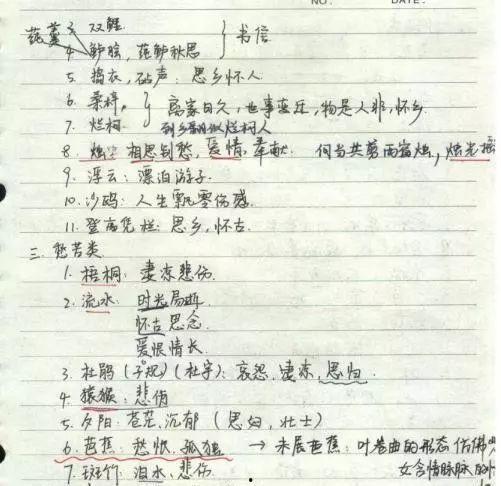 NO. DATE.
莼羹 3. 双鲤
4. 鲈脍, 莼鲈秋思 } 书信
5. 捣衣, 砧声: 思乡怀人
6. 桑梓, } 离家日久, 世事变迁, 物是人非, 怀乡
7. 烂柯 到乡翻似烂柯人
8. 烛 相思别愁, 爱情, 奉献. 何当共剪西窗烛, 烛光摇
9. 浮云: 漂泊游子.
10. 沙鸥: 人生飘零伤感.
11. 登高凭栏: 思乡, 怀古.
三. 愁苦类
1. 梧桐: 凄凉悲伤.
2. 流水: 时光易逝
怀古思念.
爱恨情长
3. 杜鹃 (子规) (杜宇): 哀怨, 凄凉, 思归.
4. 猿猴: 悲伤
5. 夕阳: 苍茫, 沉郁 (思妇, 壮士)
6. 芭蕉: 愁恨, 孤独 → 未展芭蕉: 叶卷曲的形态仿佛
女含情脉脉的
7. 斑竹: 泪水, 悲伤.